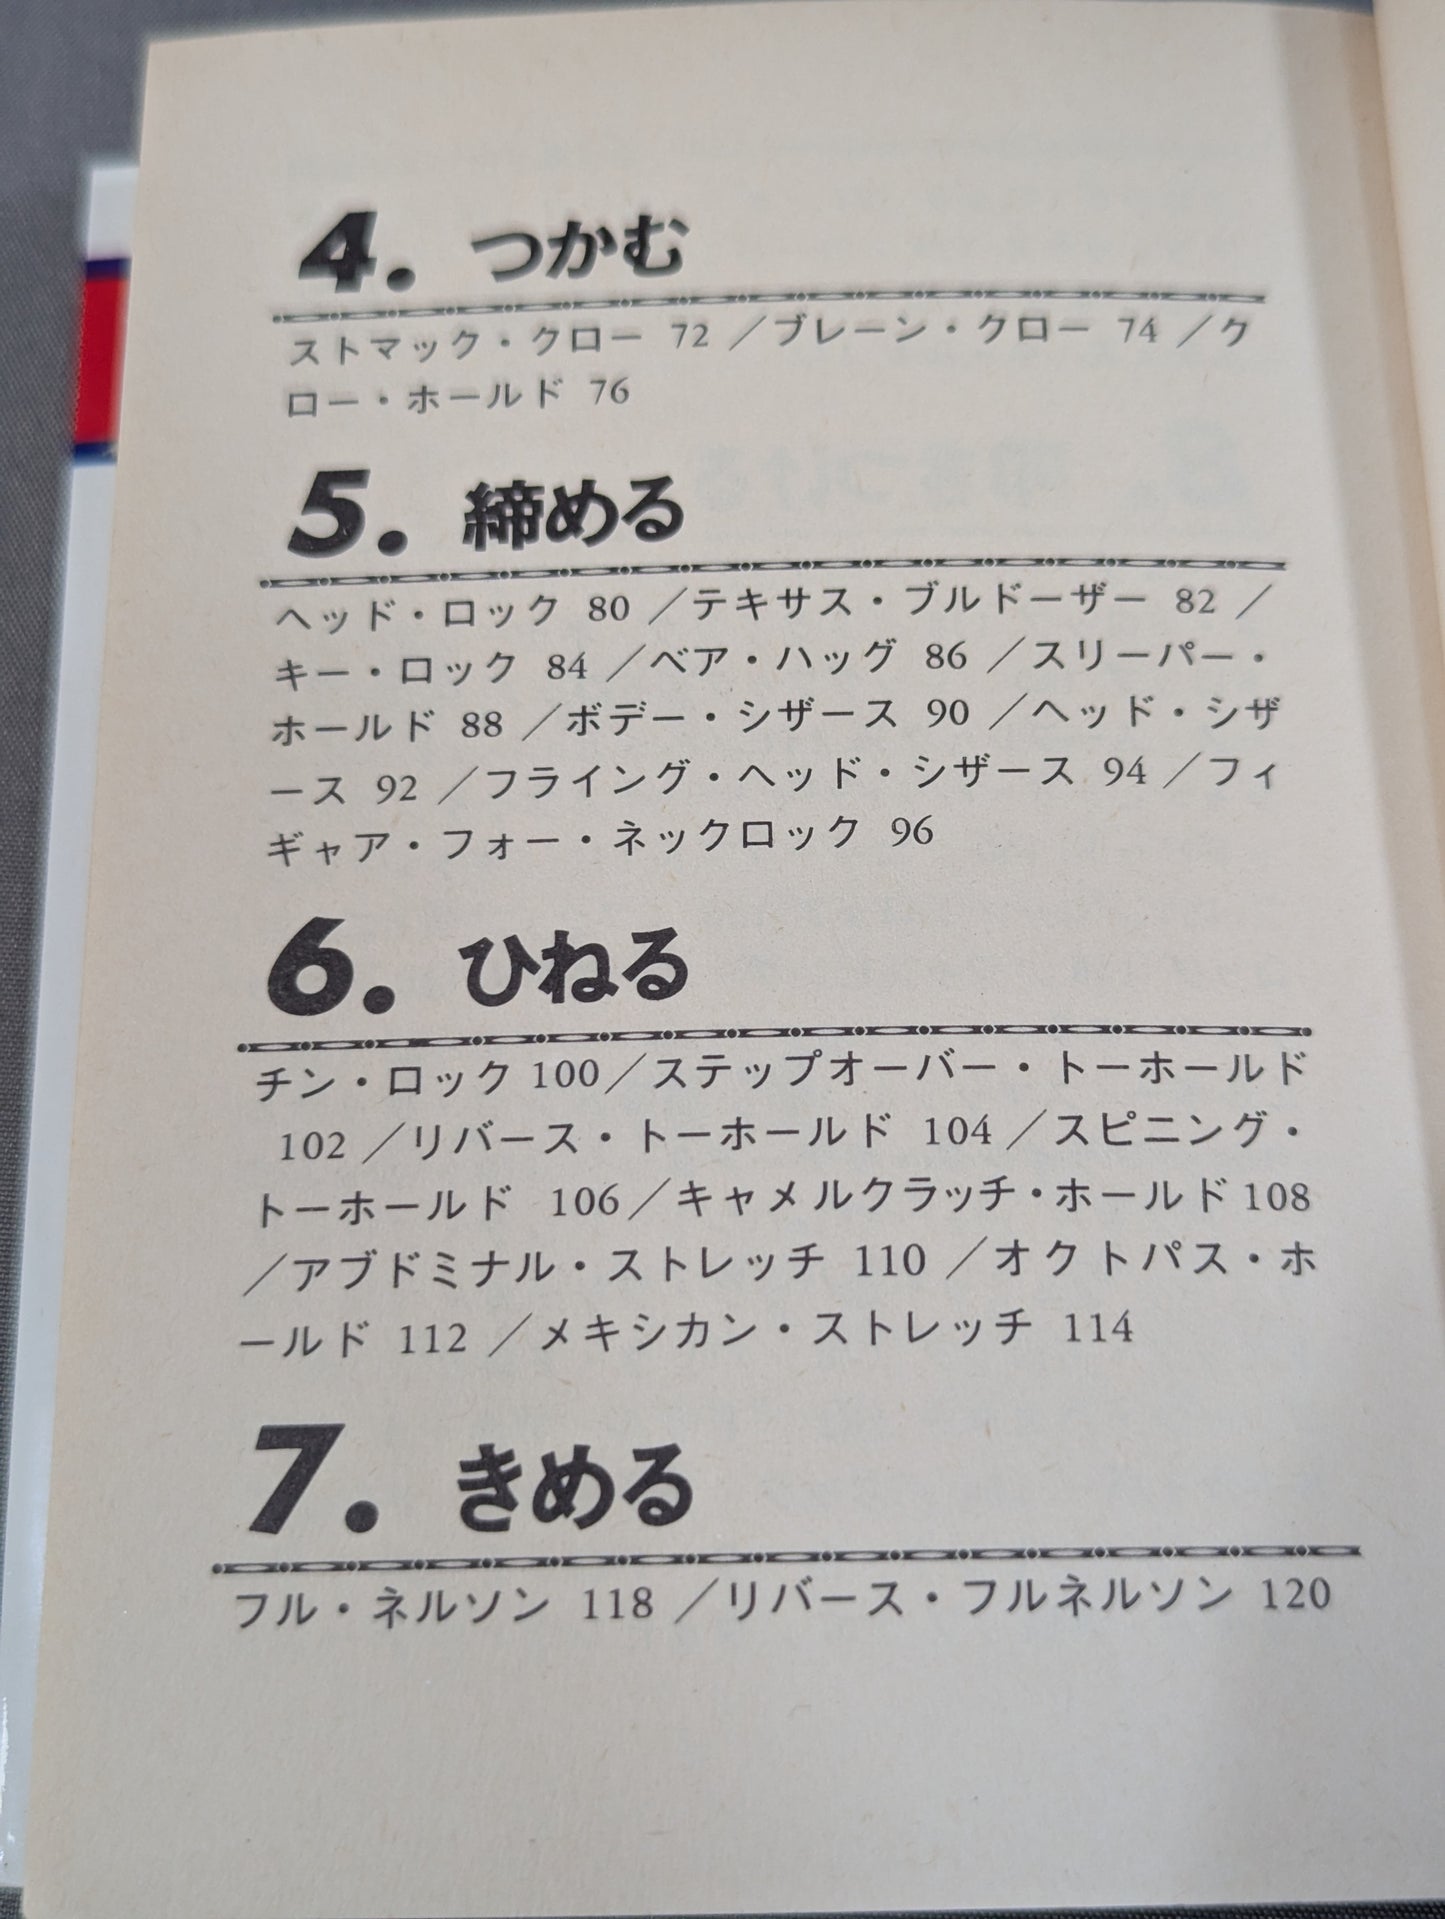 4. つかむ
ストマック・クロー 72 ／ブレーン・クロー 74 ／ク
ロー・ホールド 76
5. 締める
ヘッド・ロック 80 ／テキサス・ブルドーザー 82 ／
キー・ロック 84 ／ベア・ハッグ 86 ／スリーパー・
ホールド 88 ／ボデー・シザース 90 ／ヘッド・シザ
ース 92 ／フライング・ヘッド・シザース 94 ／フィ
ギャア・フォー・ネックロック 96
6. ひねる
チン・ロック 100／ステップオーバー・トーホールド
102 ／リバース・トーホールド 104 ／スピニング・
トーホールド 106／キャメルクラッチ・ホールド 108
／アブドミナル・ストレッチ 110 ／オクトパス・ホ
ールド 112 ／メキシカン・ストレッチ 114
7. きめる
フル・ネルソン 118 ／リバース・フルネルソン 120